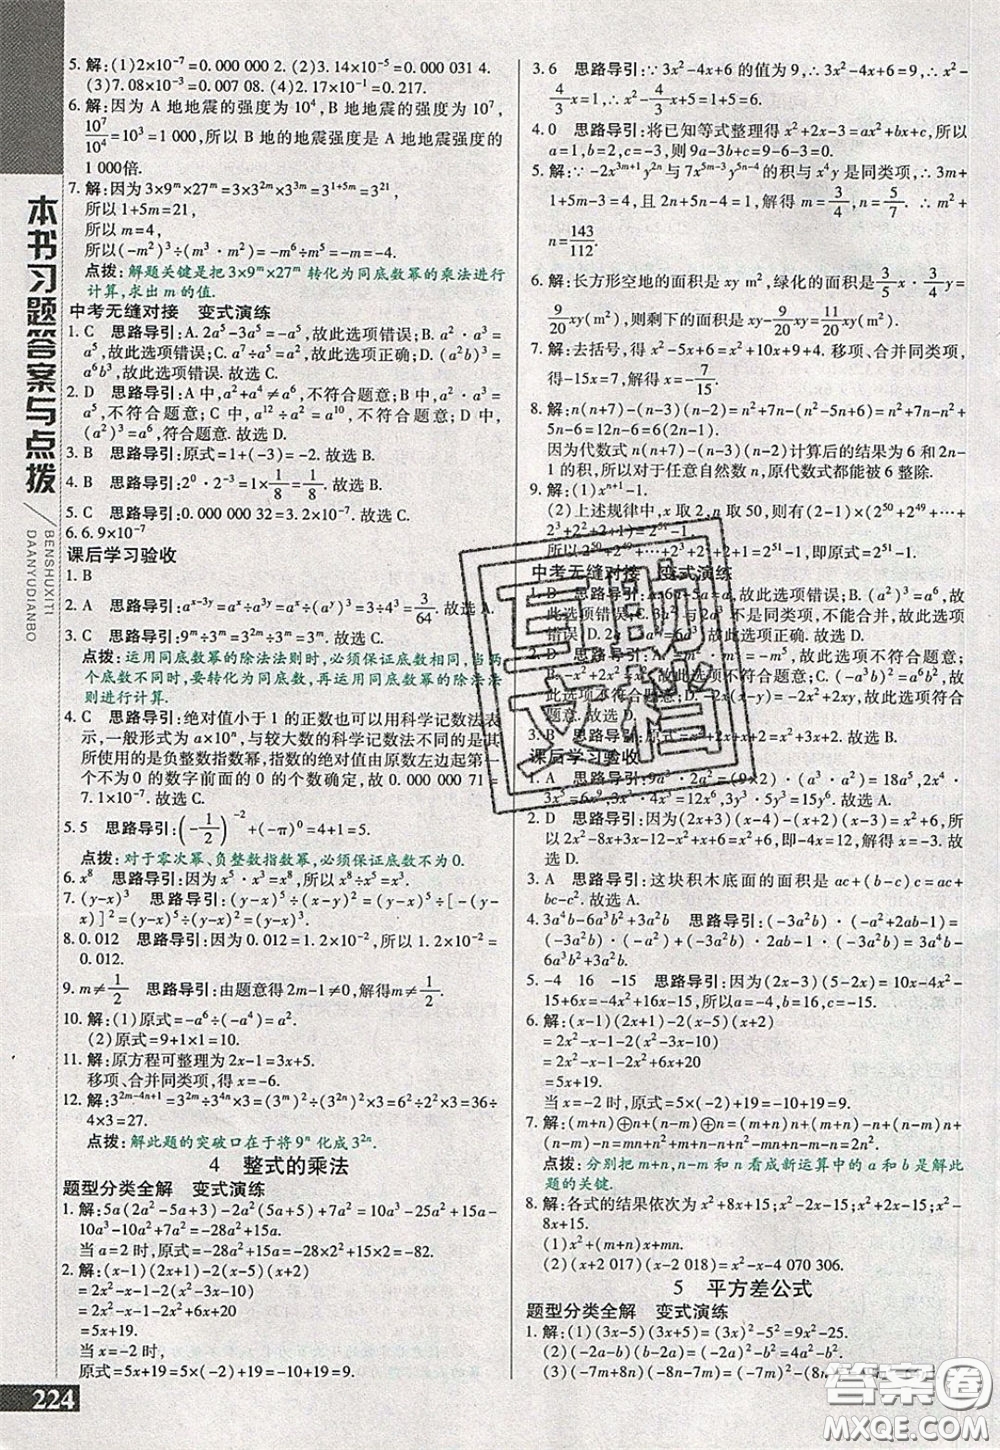 本书习题答案与点拨
BENSHUXITI
DAANYUDIANBO
5. 解:(1)2×10⁻⁷=0.000 000 2. (2)3.14×10⁻⁵=0.000 031 4.
(3)7.08×10⁻³=0.007 08. (4)2.17×10⁻¹=0.217.
6. 解:因为 A 地地震的强度为 10⁴, B 地地震的强度为 10⁷,
10⁷/10⁴=10³=1 000,所以 B 地的地震强度是 A 地地震强度的
1 000倍.
7. 解:因为 3×9ᵐ×27ᵐ=3×3²ᵐ×3³ᵐ=3¹⁺⁵ᵐ=3²¹,
所以 1+5m=21,
所以 m=4,
所以(-m²)³÷(m³·m²)=-m⁶÷m⁵=-m=-4.
点拨:解题关键是把 3×9ᵐ×27ᵐ 转化为同底数幂的乘法进行
计算,求出 m 的值.
中考无缝对接 变式演练
1. C 思路导引:A. 2a⁵-3a⁵=-a⁵,故此选项错误;B. a²·a³=
a⁵,故此选项错误;C. a⁷÷a⁵=a²,故此选项正确;D. (a²b)³=
a⁶b³,故此选项错误. 故选 C.
2. D 思路导引:A 中,a²+a⁴≠a⁶,不符合题意;B 中,a²·a³=
a⁵,不符合题意;C 中,a¹²÷a²=a¹⁰,不符合题意;D 中,
(a²)³=a⁶,符合题意. 故选 D.
3. B 思路导引:原式=1-(-3)=4. 故选 B.
4. B 思路导引:2⁰·2⁻³=1×1/8=1/8. 故选 B.
5. C 思路导引:0.000 000 32=3.2×10⁻⁷. 故选 C.
6.6.9×10⁻⁷
课后学习验收
1. B
2. A 思路导引:aˣ⁻³ʸ=aˣ÷a³ʸ=aˣ÷(aʸ)³=3÷4³=3/64. 故选 A.
3. C 思路导引:9ᵐ÷3ᵐ=3²ᵐ÷3ᵐ=3²ᵐ⁻ᵐ=3ᵐ. 故选 C.
点拨:运用同底数幂的除法法则时,必须保证底数相同,当两
个底数不同时,要转化为同底数,再运用同底数幂的除法法
则进行计算.
4. C 思路导引:绝对值小于 1 的正数也可以用科学记数法表
示,一般形式为 a×10ⁿ,与较大数的科学记数法不同的是其
所使用的是负整数指数幂,指数的绝对值由原数左边起第一
个不为 0 的数字前面的 0 的个数确定,故 0.000 000 71=
7.1×10⁻⁷. 故选 C.
5. 5 思路导引:(-1/2)⁻²+(-π)⁰=4+1=5.
点拨:对于零次幂、负整数指数幂,必须保证底数不为 0.
6. x⁸ 思路导引:因为 x⁵·x³=x⁸,所以 x⁸÷x³=x⁵.
7. (y-x)³ 思路导引:(y-x)⁵÷(x-y)²=(y-x)⁵÷[-(y-
x)]²=(y-x)⁵÷(y-x)²=(y-x)³.
8. 0.012 思路导引:因为 0.012=1.2×10⁻²,所以 1.2×10⁻²=
0.012.
9. m≠1/2 思路导引:由题意得2m-1≠0,解得 m≠1/2.
10. 解:(1)原式=-a⁶÷(-a⁴)=a².
(2)原式=9+1×1=10.
11. 解:原方程可整理为 2x-1=3x+5.
移项、合并同类项,得 x=-6.
12. 解:3²ᵐ⁻⁴ⁿ⁺¹=3²ᵐ÷3⁴ⁿ×3=(3ᵐ)²÷(3²ⁿ)²×3=6²÷2²×3=36÷
4×3=27.
点拨:解此题的突破口在于将 9ⁿ 化成 3²ⁿ.
4 整式的乘法
题型分类全解 变式演练
1. 解:5a(2a²-5a+3)-2a²(5a+5)+7a²=10a³-25a²+15a-
10a³-10a²+7a²=-28a²+15a.
当 a=2 时,原式=-28a²+15a=-28×2²+15×2=-82.
2. 解:(x-1)(2x+1)-2(x-5)(x+2)
=2x²-x-1-2(x²-3x-10)
=2x²-x-1-2x²+6x+20
=5x+19.
当 x=-2 时,
原式=5x+19=5×(-2)+19=-10+19=9.
3. 6 思路导引:∵3x²-4x+6 的值为 9,∴3x²-4x=3,∴x²-
4/3x=1,∴x²-4/3x+5=1+5=6.
4. 0 思路导引:将已知等式整理得 x²+2x-3=ax²+bx+c,所以
a=1,b=2,c=-3,则原式=9a-3b+c=9-6-3=0.
5. 解:∵-2x³ᵐ⁺¹y²ⁿ与 7x⁵ᵐ⁻³y⁵ⁿ⁻⁴的积与 x⁴y 是同类项,∴3m+
1+5m-3=4, 2n+5n-4=1,解得 m=3/4, n=5/7. ∴m²+
n=143/112.
6. 解:长方形空地的面积是 xy m²,绿化的面积是3/5x·3/4y=
9/20xy(m²),则剩下的面积是 xy-9/20xy=11/20xy(m²).
7. 解:去括号,得 x²-5x+6=x²+10x+9+4. 移项、合并同类项,
得-15x=7,解得 x=-7/15.
8. 解:n(n+7)-(n-3)(n-2)=n²+7n-(n²-5n+6)=n²+7n-n²+
5n-6=12n-6=6(2n-1).
因为代数式 n(n+7)-(n-3)(n-2)计算后的结果为 6 和 2n-
1 的积,所以对于任意自然数 n,原代数式都能被 6 整除.
9. 解:(1)xⁿ⁺¹-1
(2)上述规律中,x 取 2,n 取 50,则有(2-1)×(2⁵⁰+2⁴⁹+
…+2³+2²+2+1)=2⁵¹-1.
所以 2⁵⁰+2⁴⁹+…+2³+2²+2+1=2⁵¹-1,即原式=2⁵¹-1.
中考无缝对接 变式演练
3. B
课后学习验收
2. D 思路导引:因为(2x+3)(x-4)-(x+2)(x-3)=x²+6,所
以 2x²-8x+3x-12-x²+x+6=x²+6,即-4x=12,解得 x=-3. 故
选 D.
3. A 思路导引:这块积木底面的面积是 ac+(b-c)c=ac+
bc-c². 故选 A.
4. 3a⁴b-6a³b²+3a²b 思路导引:(-3a²b)·(-a²+2ab-1)=
(-3a²b)·(-a²)+(-3a²b)·2ab+(-3a²b)·(-1)=
3a⁴b-6a³b²+3a²b.
5. -4 16 -15 思路导引:因为(2x-3)(5-2x)=10x-4x²-
15+6x=-4x²+16x-15,所以 a=-4,b=16,c=-15.
6. 解:(x-1)(2x+1)-2(x-5)(x+2)
=2x²-x-1-2(x²-3x-10)
=2x²-x-1-2x²+6x+20
=5x+19.
当 x=-2 时,原式=5×(-2)+19=-10+19=9.
7. 解:(m+n)⊕(m-n)=(m+n)²-(m+n)(m-n)=m²+2mn+
n²-m²+n²=2mn+2n².
点拨:分别把 m+n,m-n 看成新运算中的 a 和 b 是解此
题的关键.
8. 解:各式的结果依次为 x²+8x+15;x²-2x-15;x²+2x-15;x²-
8x+15.
(1)x²+(m+n)x+mn.
(2)(x+2 017)(x-2 018)=x²-x-4 070 306.
5 平方差公式
题型分类全解 变式演练
1. 解:(1)(3x-5)(3x+5)=(3x)²-5²=9x²-25.
(2)(-2a-b)(b-2a)=(-2a)²-b²=4a²-b².
224
答案圈
MXQE.COM